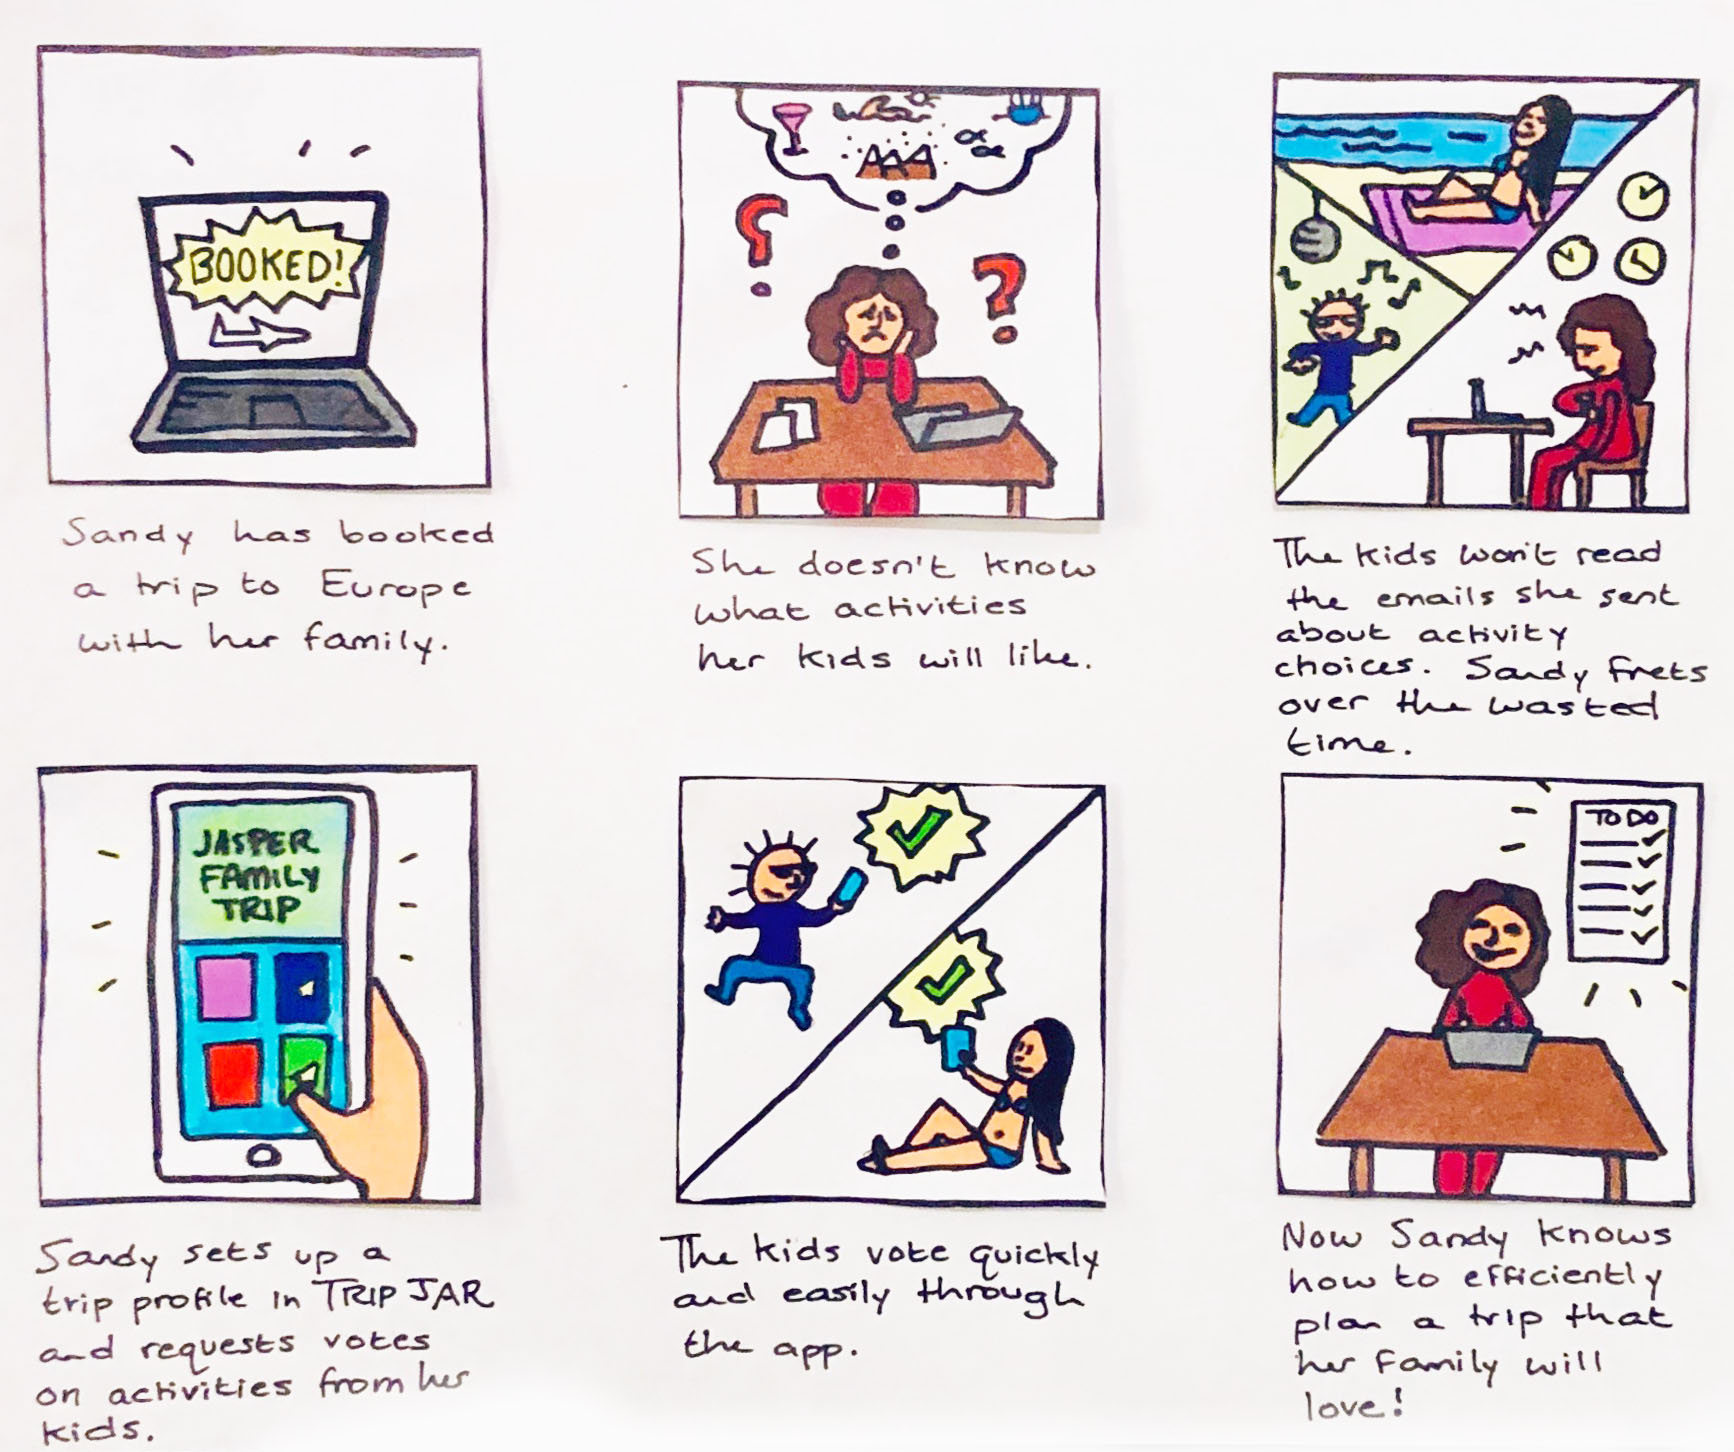 BOOKED!
Sandy has booked
a trip to Europe
with her family.
She doesn't know
what activities
her kids will like.
The kids won't read
the emails she sent
about activity
choices. Sandy frets
over the wasted
time.
JASPER
FAMILY
TRIP
Sandy sets up a
trip profile in TRIP JAR
and requests votes
on activities from her
kids.
The kids vote quickly
and easily through
the app.
TO DO
Now Sandy knows
how to efficiently
plan a trip that
her family will
love!